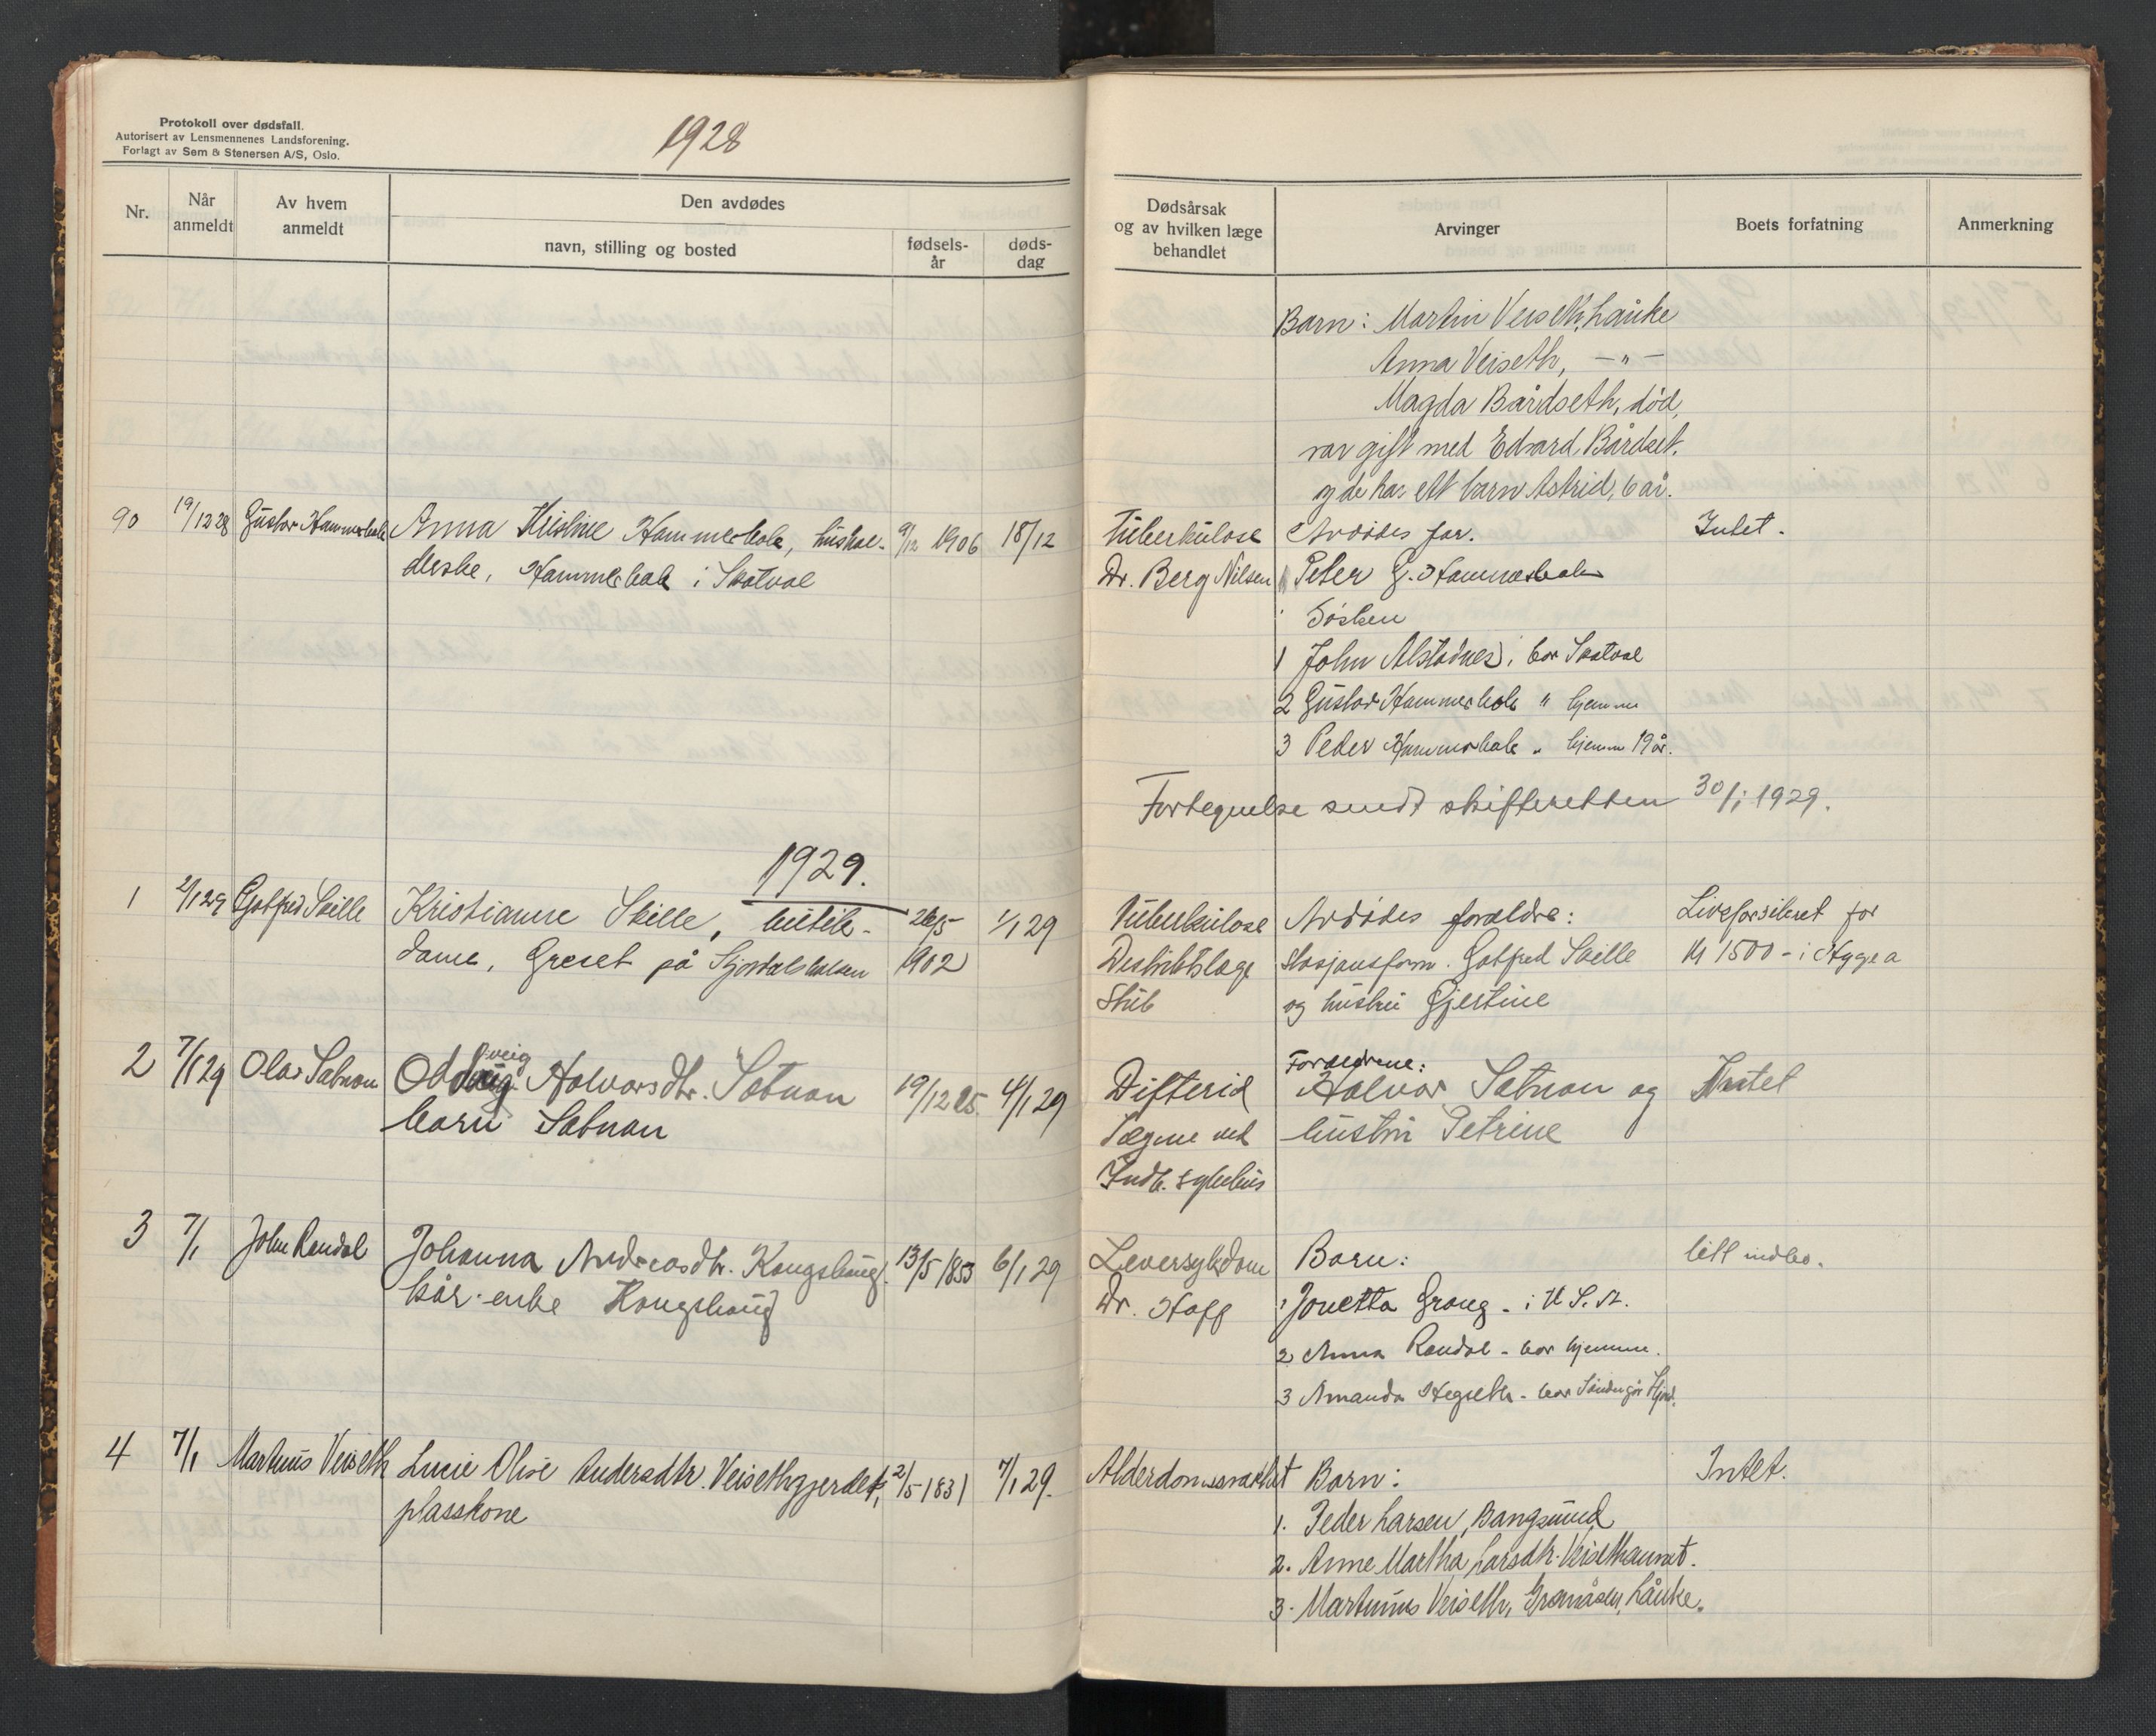 Protokoll over dødsfall.
Autorisert av Lensmennenes Landsforening.
Forlagt av Sem & Stenersen A/S, Oslo.
1928
Nr.
Når anmeldt
Av hvem anmeldt
Den avdødes
navn, stilling og bosted
fødsels-år
døds-dag
Dødsårsak og av hvilken læge behandlet
Arvinger
Boets forfatning
Anmerkning
Barn: Martin Veiseth, Lånke
Anna Veiseth, — " —
Magda Bårdseth, død,
var gift med Edvard Bårdset.
og de har ett barn Astrid, 6 år.
90 19/12 28 Gustav Hammerbak Anna Kristine Hammerbak, hushol- 9/12 1906 18/12 Tuberkulose Avdødes far. Intet.
derske, Hammerbak i Skatval Dr. Berg Nilsen Peter G. Hammerbak
Søsken
1 John Alstadnes, bor Skatval
2 Gustav Hammerbak " hjemme
3 Peder Hammerbak " hjemme 19 år.
Fortegnelse sendt skifteretten 30/1 1929.
1929.
1 2/1 29 Gotfred Skille Kristianne Skille, butik- 26/5 1/1 29 Tuberkulose Avdødes forældre: Livsforsikret for
dame, Græset på Stjørdalshalsen 1902 Distriktslæge stasjonsform. Gotfred Skille Kr 1500 - i Hygea
Stub og hustru Gjertine
2 7/1 29 Olav Sætnan Oddveig Halvorsdtr. Sætnan 19/12 25. 4/1 29 Difterid Forældrene: Halvor Sætnan og Intet
barn Sætnan Lægene ved hustru Petrine
Indh. sykehus
3 7/1 John Randal Johanna Andreasdtr. Kongshaug. 13/5 1853 6/1 29 Leversykdom Barn: litt indbo.
kår-enke Kongshaug Dr. Hoff 1 Jonetta Graug - i U.S.A.
2 Anna Randal - bor hjemme.
3 Amanda Hegseth - bor
4 7/1 Martinus Veiseth Lucie Olise Andersdtr. Veisethgjerdet, 2/5 1831 7/1 29. Alderdomssvakhet Barn: Intet.
plasskone 1. Peder Larsen, Bangsund
2. Anne Martha Larsdtr. Veisethaunet.
3. Martinus Veiseth, Lånke.